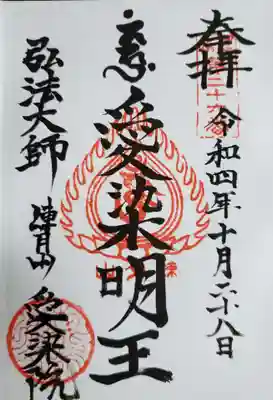 奉拝
令和四年十月二十八日
愛染明王
弘法大師
蓮月山
愛染院